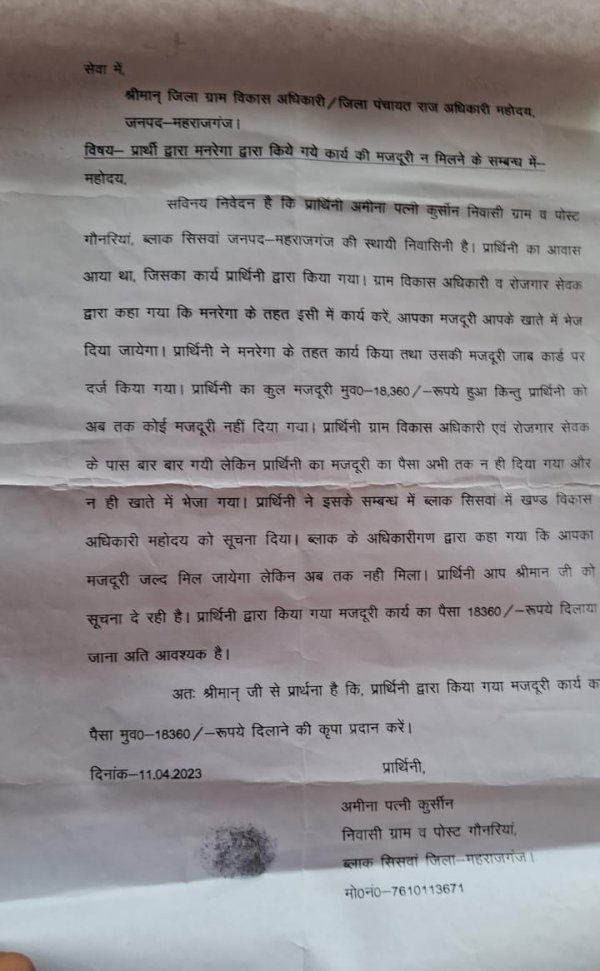 सेवा में,
श्रीमान् जिला ग्राम विकास अधिकारी/जिला पंचायत राज अधिकारी महोदय,
जनपद–महराजगंज।
विषय– प्रार्थी द्वारा मनरेगा द्वारा किये गये कार्य की मजदूरी न मिलने के सम्बन्ध में–
महोदय,
सविनय निवेदन है कि प्रार्थिनी अमीना पत्नी कुर्सीन निवासी ग्राम व पोस्ट
गौनरियां, ब्लाक सिसवां जनपद–महराजगंज की स्थायी निवासिनी है। प्रार्थिनी का आवास
आया था, जिसका कार्य प्रार्थिनी द्वारा किया गया। ग्राम विकास अधिकारी व रोजगार सेवक
द्वारा कहा गया कि मनरेगा के तहत इसी में कार्य करें, आपका मजदूरी आपके खाते में भेज
दिया जायेगा। प्रार्थिनी ने मनरेगा के तहत कार्य किया तथा उसकी मजदूरी जाब कार्ड पर
दर्ज किया गया। प्रार्थिनी का कुल मजदूरी मुव0–18,360/–रूपये हुआ किन्तु प्रार्थिनी को
अब तक कोई मजदूरी नहीं दिया गया। प्रार्थिनी ग्राम विकास अधिकारी एवं रोजगार सेवक
के पास बार बार गयी लेकिन प्रार्थिनी का मजदूरी का पैसा अभी तक न ही दिया गया और
न ही खाते में भेजा गया। प्रार्थिनी ने इसके सम्बन्ध में ब्लाक सिसवां में खण्ड विकास
अधिकारी महोदय को सूचना दिया। ब्लाक के अधिकारीगण द्वारा कहा गया कि आपका
मजदूरी जल्द मिल जायेगा लेकिन अब तक नही मिला। प्रार्थिनी आप श्रीमान जी को
सूचना दे रही है। प्रार्थिनी द्वारा किया गया मजदूरी कार्य का पैसा 18360/–रूपये दिलाया
जाना अति आवश्यक है।
अतः श्रीमान् जी से प्रार्थना है कि, प्रार्थिनी द्वारा किया गया मजदूरी कार्य का
पैसा मुव0–18360/–रूपये दिलाने की कृपा प्रदान करें।
दिनांक–11.04.2023
प्रार्थिनी,
अमीना पत्नी कुर्सीन
निवासी ग्राम व पोस्ट गौनरियां,
ब्लाक सिसवां जिला–महराजगंज।
मो0नं0–7610113671